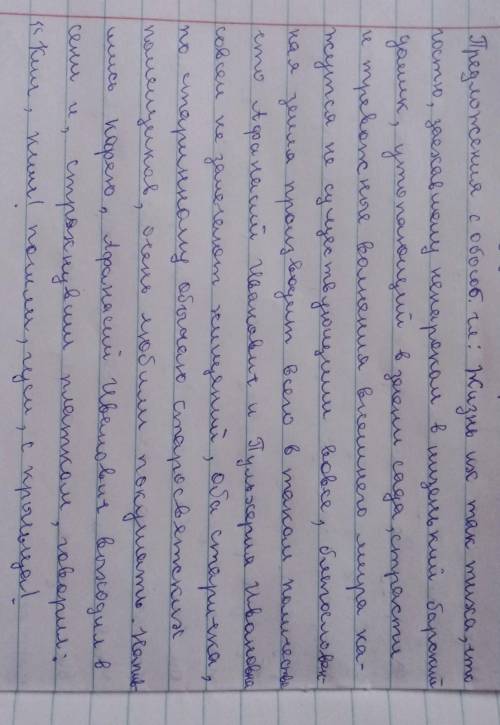 Предложения с обособ чл: Жизнь их так тиха, что
гостю, заехавшему ненароком в низенький барский
домик, утопающий в зелени сада, страсти
и тревожные волнения внешнего мира ка-
жутся не существующими вовсе, благословен-
ная земля производит всего в таком количестве
что Афанасий Иванович и Пульхерия Ивановна
совсем не замечают хищений, Оба старичка,
по старинному обычаю старосветских
помещиков, очень любили покушать. Напив-
шись кофею, Афанасий Иванович выходил в
сени и, стряхнувши платком, говорил:
"Киш, киш! пошли, гуси, с крыльца!